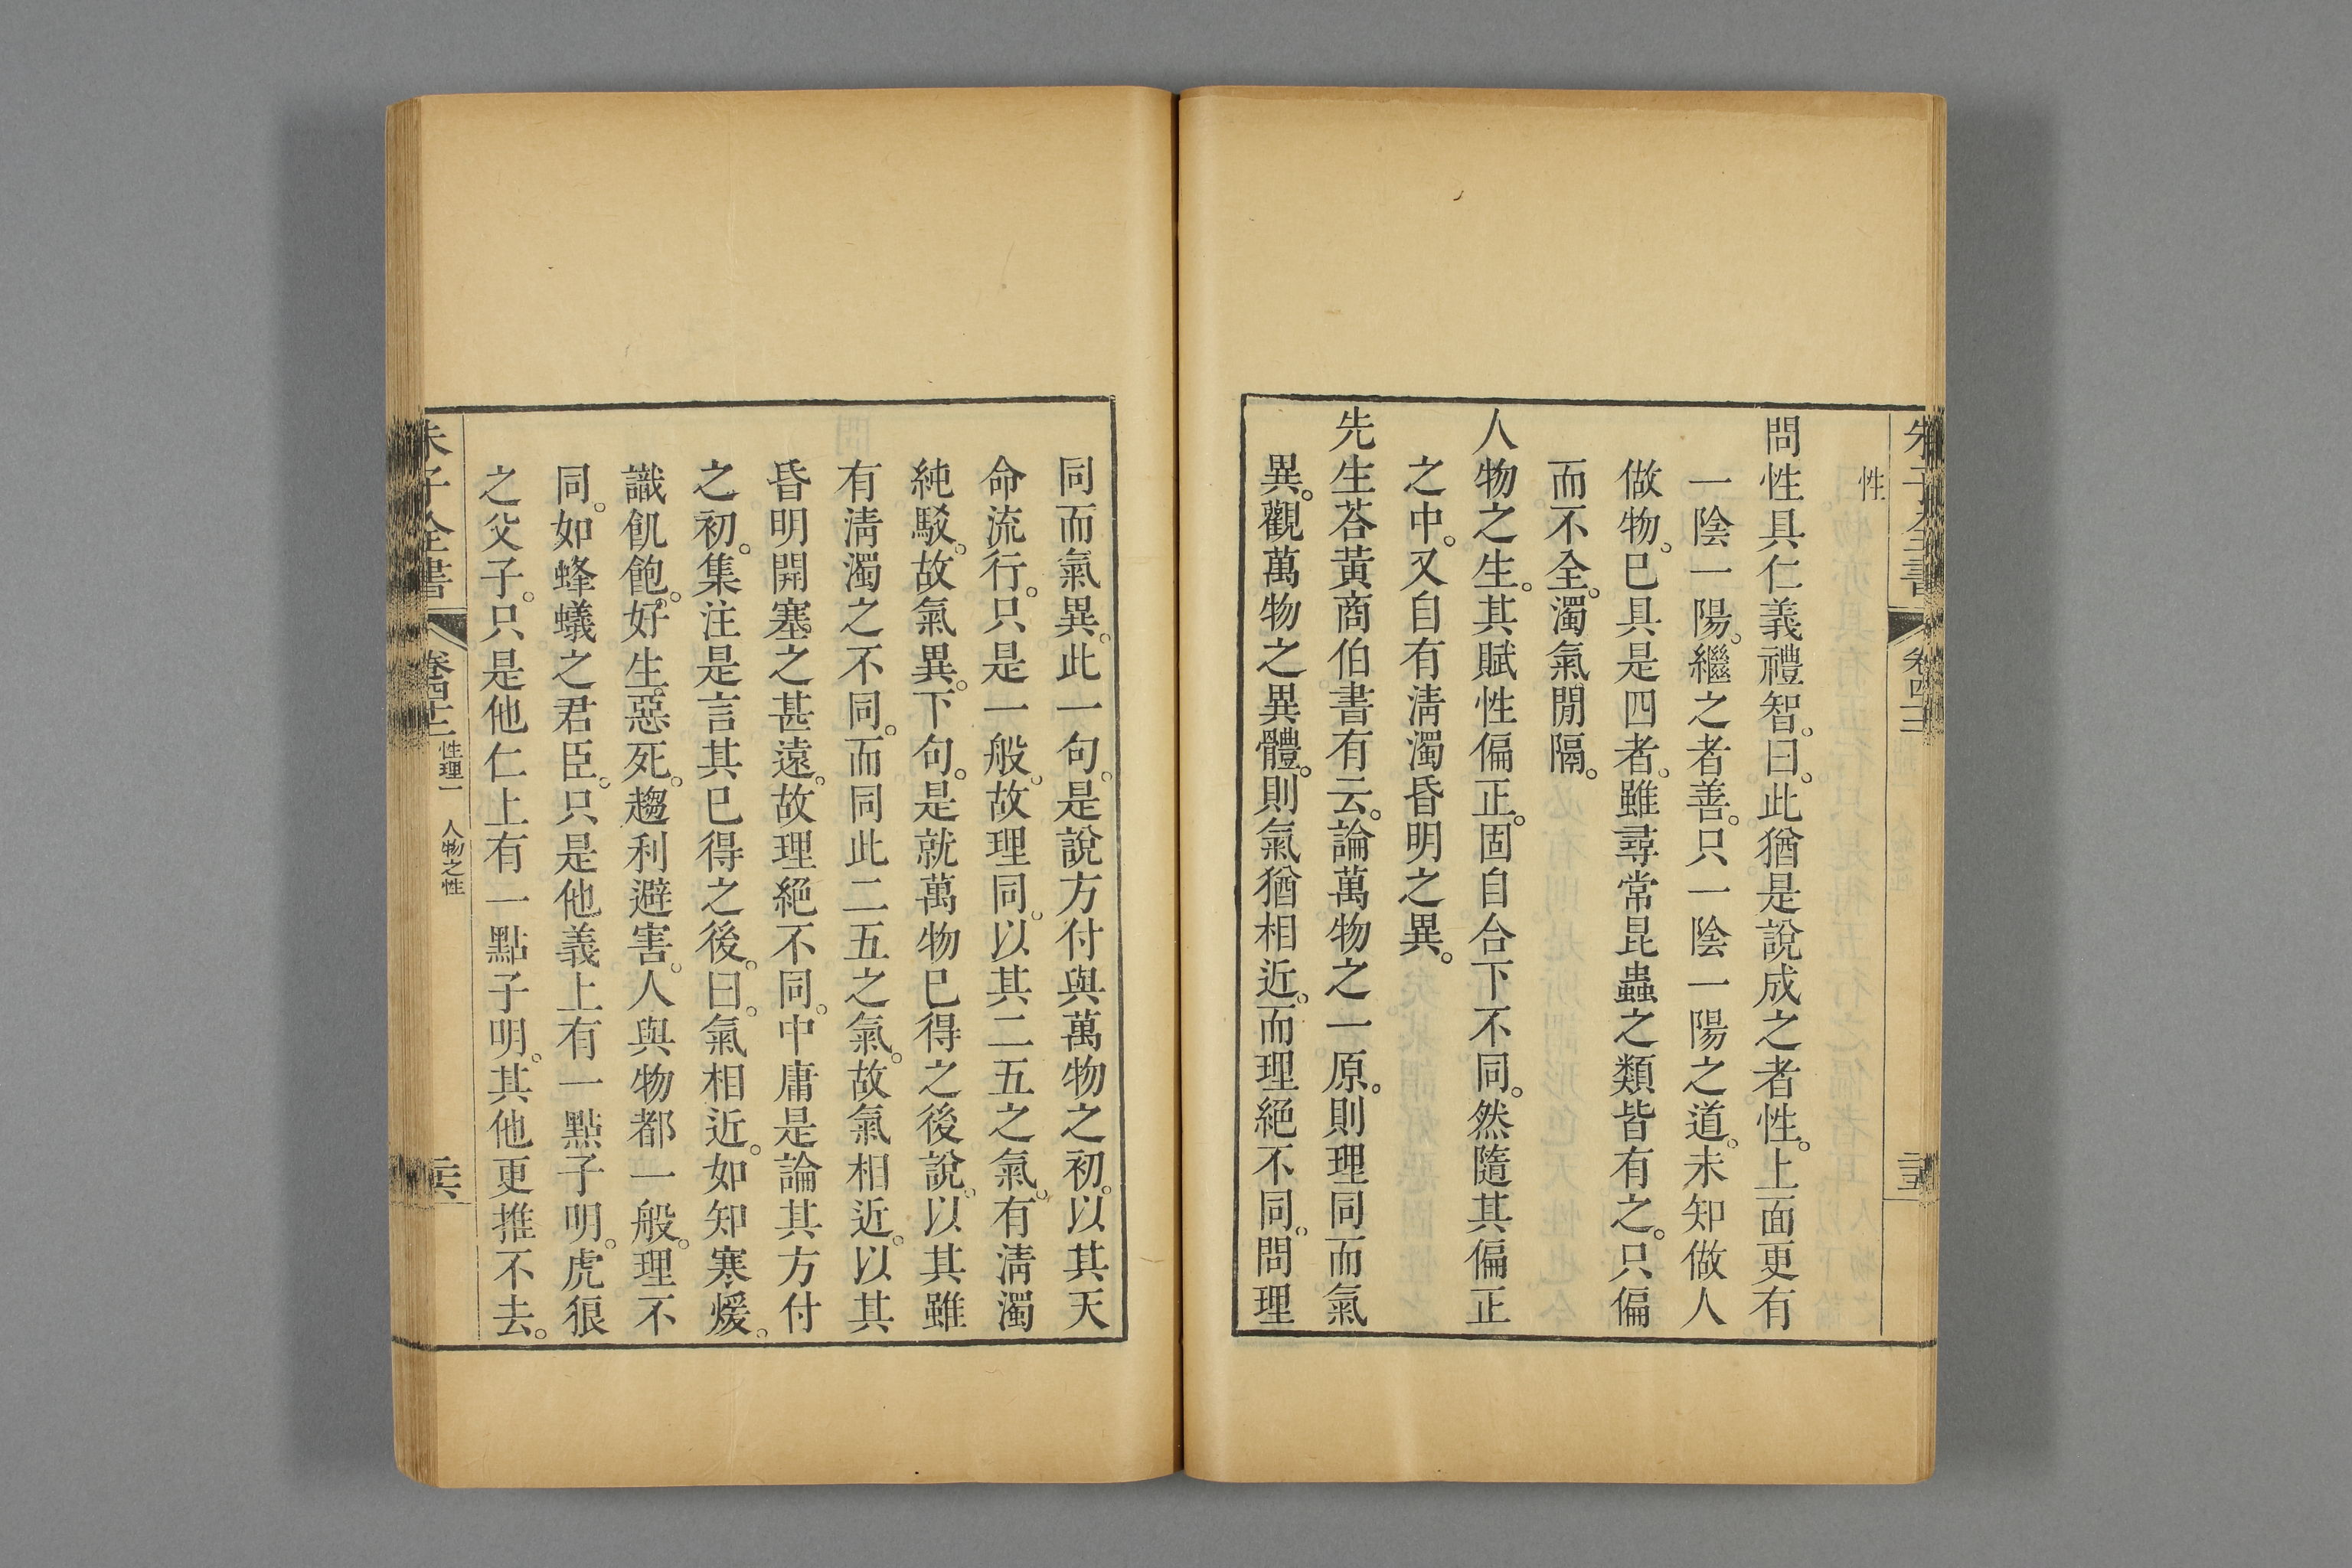 朱子全書
卷四十二
二十五
性
問性具仁義禮智。曰。此猶是說成之者性。上面更有
一陰一陽。繼之者善。只一陰一陽之道。未知做人
做物。已具是四者。雖尋常昆蟲之類皆有之。只偏
而不全。濁氣閒隔。
人物之生。其賦性偏正。固自合下不同。然隨其偏正
之中。又自有淸濁昏明之異。
先生荅黃商伯書有云。論萬物之一原。則理同而氣
異。觀萬物之異體。則氣猶相近。而理絕不同。問理
同而氣異。此一句。是說方付與萬物之初。以其天
命流行。只是一般。故理同。以其二五之氣。有淸濁
純駁。故氣異。下句。是就萬物已得之後說。以其雖
有淸濁之不同。而同此二五之氣。故氣相近。以其
昏明開塞之甚遠。故理絕不同。中庸是論其方付
之初。集注是言其已得之後。曰。氣相近。如知寒煖。
識飢飽。好生。惡死。趨利避害。人與物都一般。理不
同。如蜂蟻之君臣。只是他義上有一點子明。虎狼
之父子。只是他仁上有一點子明。其他更推不去。
朱子全書
卷四十二
性理一
人物之性
二十六